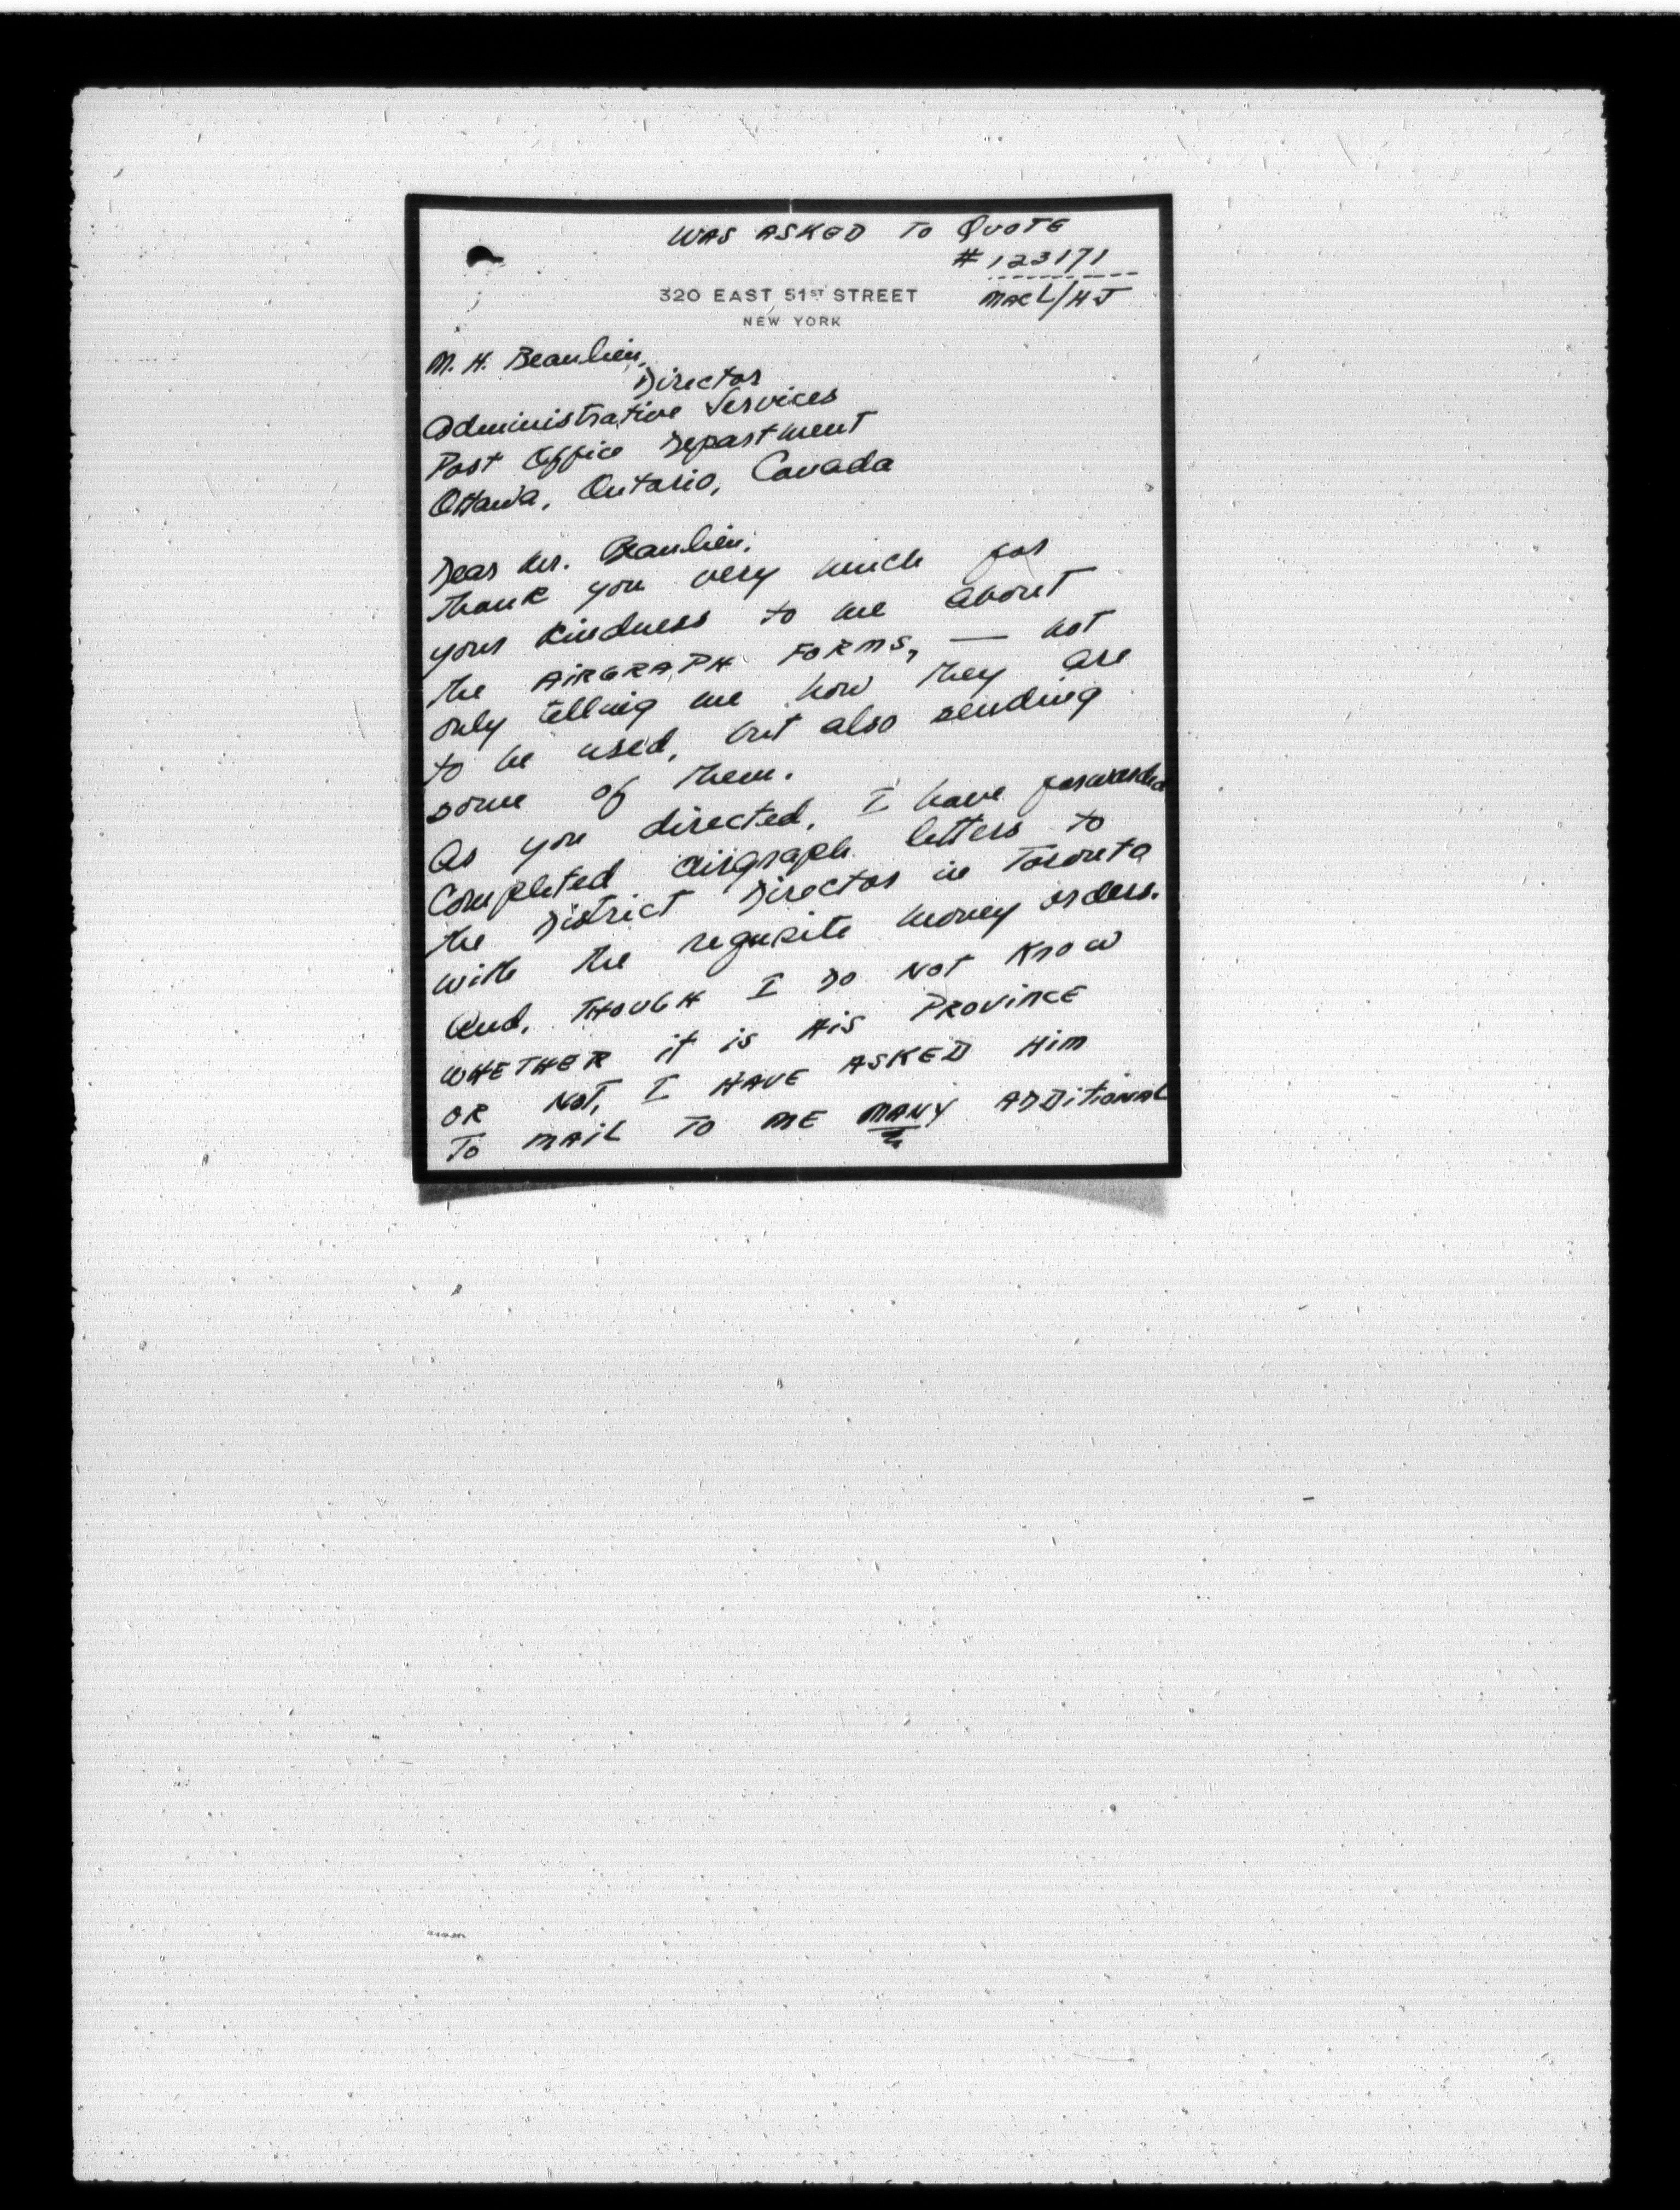 WAS ASKED TO QUOTE
#123171
MACL/HJ
320 EAST 51ST STREET
NEW YORK
M. H. Beaulieu,
Director
Administrative Services
Post Office Department
Ottawa, Ontario, Canada
Dear Mr. Beaulieu,
Thank you very much for
your kindness to me about
the AIRGRAPH FORMS, — not
only telling me how they are
to be used, but also sending
some of them.
As you directed, I have forwarded
completed airgraph letters to
the District Director in Toronto
with the requisite money orders.
And, THOUGH I DO NOT KNOW
WHETHER it is His PROVINCE
OR NOT, I HAVE ASKED HIM
TO MAIL TO ME MANY ADDITIONAL